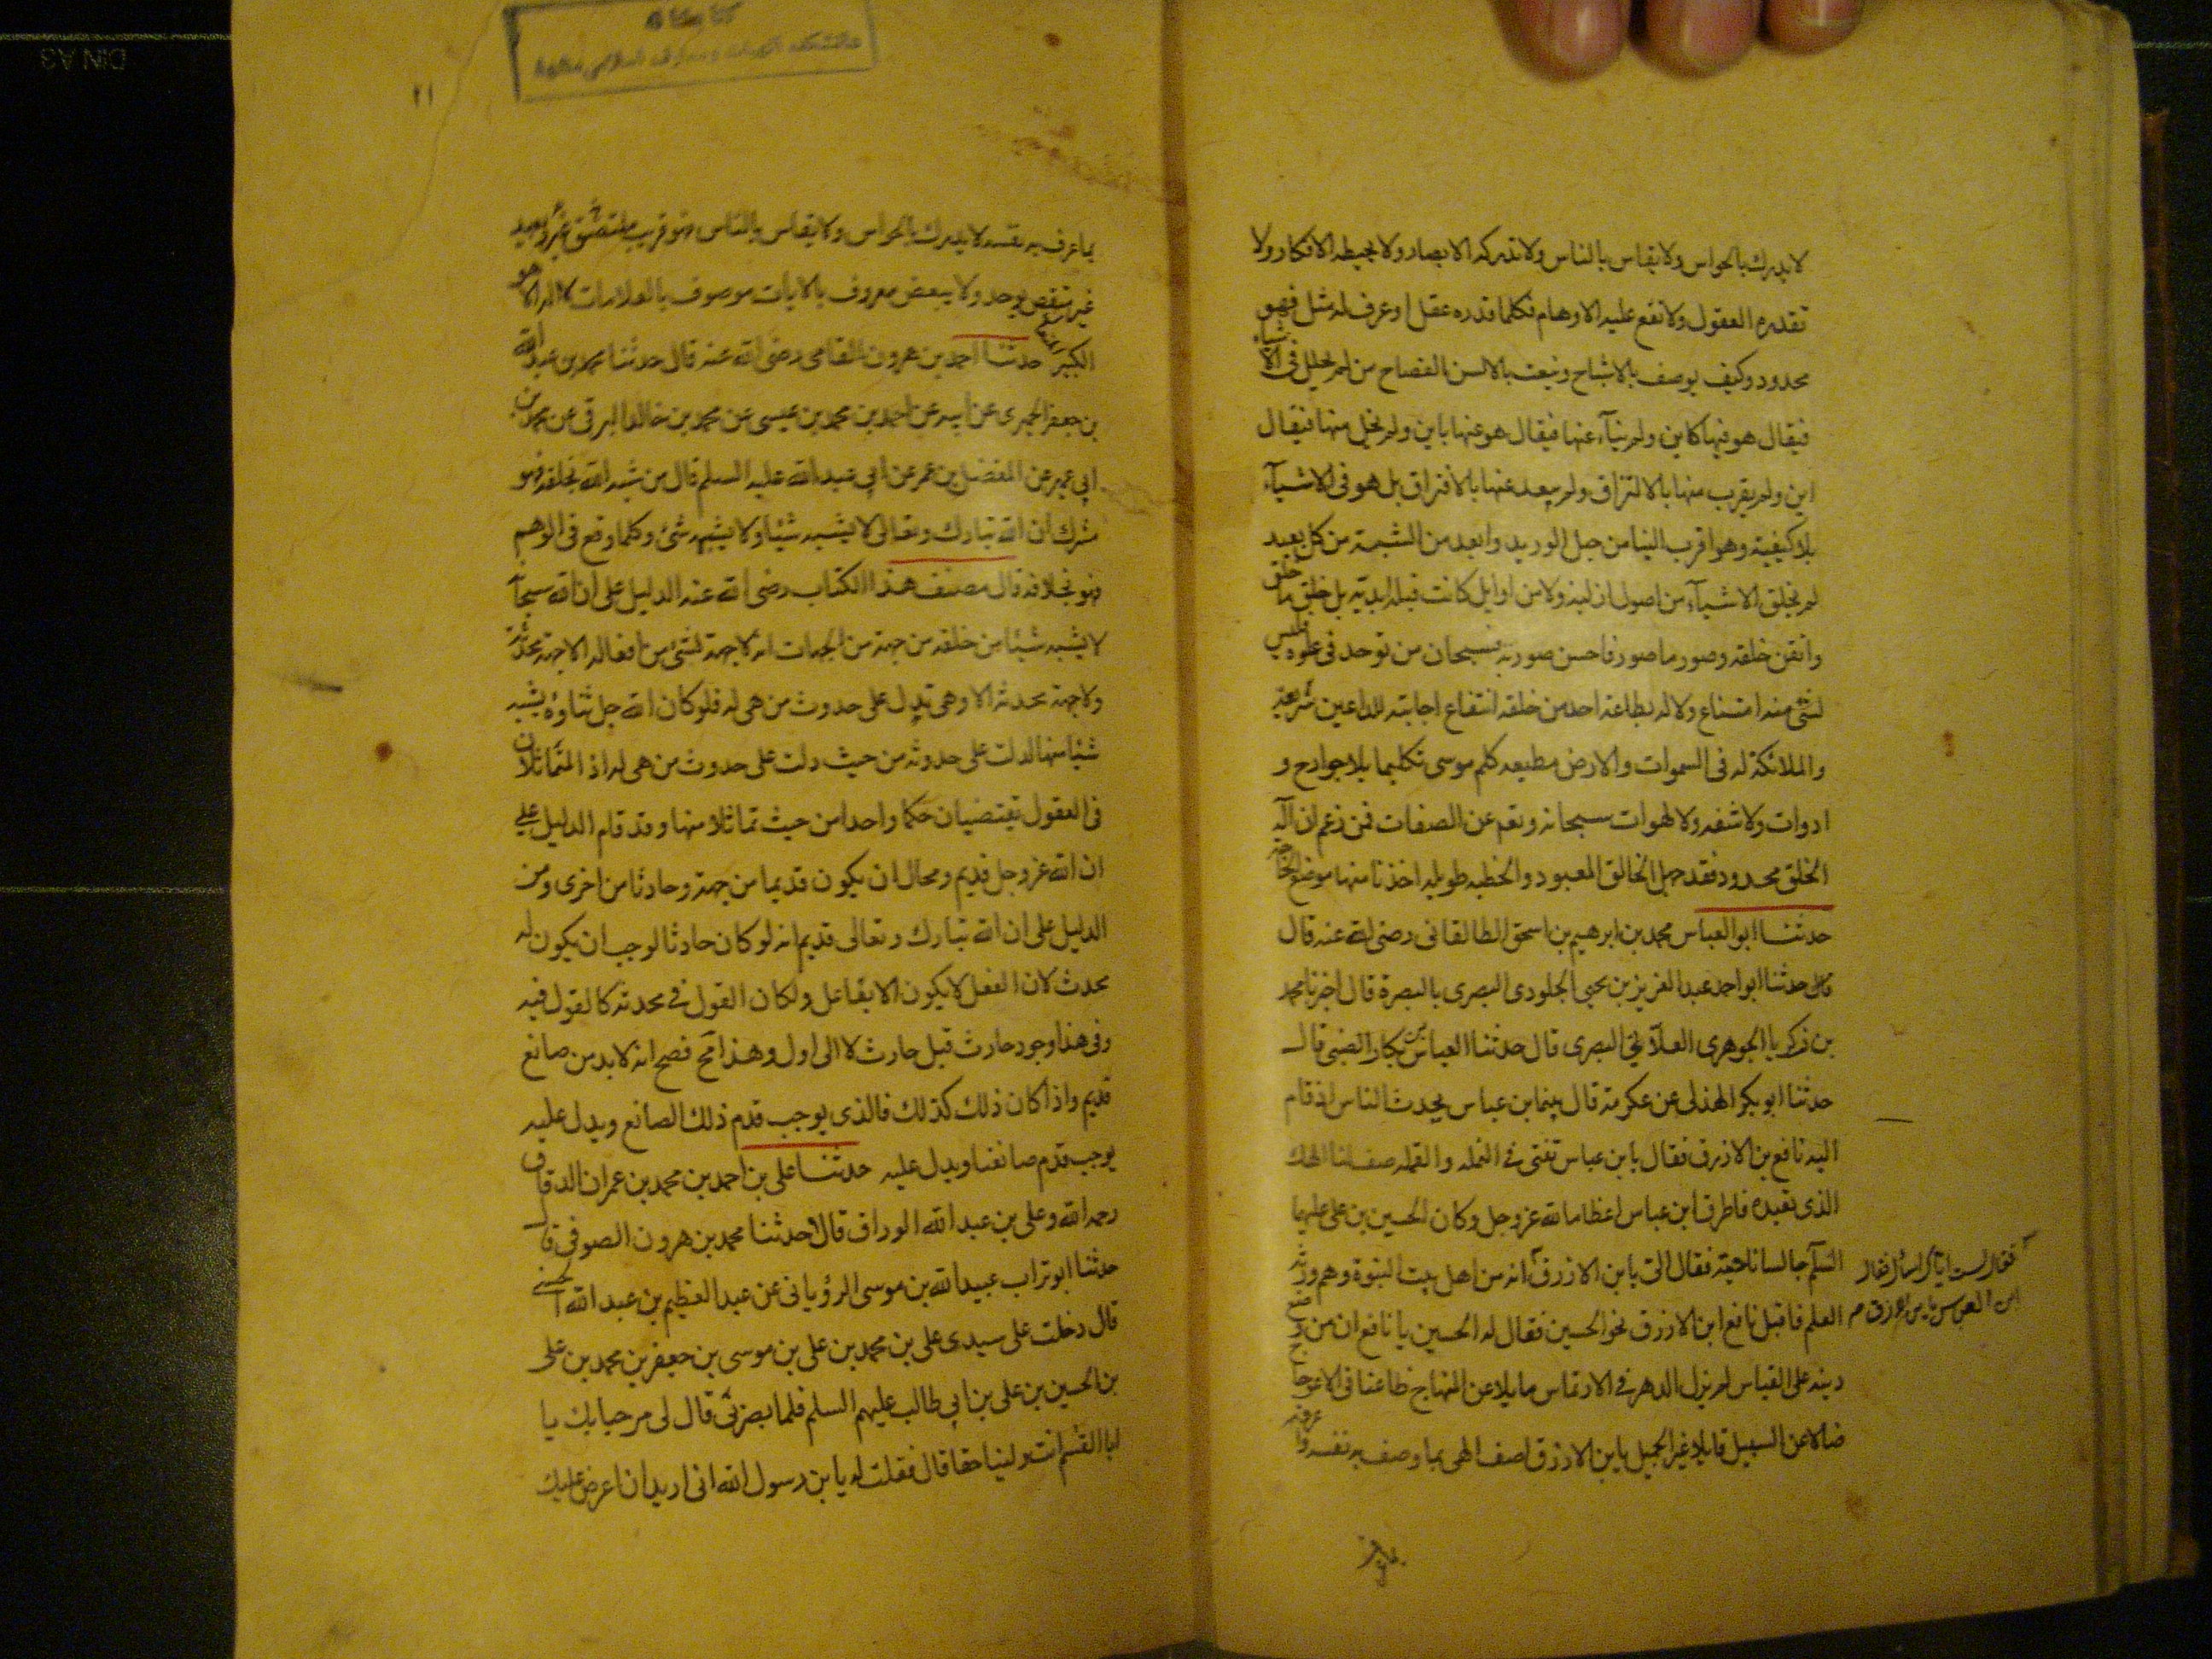 لا يدرك بالحواس ولا يقاس بالناس ولا تدركه الابصار ولا يحيطه الافكار ولا
تقديره العقول ولا تقع عليه الاوهام فكلما قدره عقل او عرف له مثل فهو
محدود وكيف يوصف بالاشباح وينعت بالالسن الفصاح من لم يحلل فى الاشياء
فيقال هو فيها كاين ولم ينأ عنها فيقال هو عنها باين ولم يخل منها فيقال
اين ولم يقرب منها بالالتزاق ولم يبعد عنها بالافتراق بل هو فى الاشيآء
بلا كيفية وهو اقرب الينا من حبل الوريد وابعد من الشبهة من كل بعيد
لم يخلق الاشيآء من اصول ازلية ولا من اوايل كانت قبله ابدية بل خلق ما خلق
واتقن خلقه وصور ما صور فاحسن صورته فسبحان من توحد فى علوه فليس
لشئ منه امتناع ولا له بطاعة احد من خلقه انتفاع اجابته للداعين سريعة
والملائكة له فى السموات والارض مطيعه كلم موسى تكليما بلا جوارح و
ادوات ولا شفه ولا لهوات سبحانه وتعم عن الصفات فمن زعم ان اله
الخلق محدود فقد جهل الخالق المعبود والخطبه طويله اخذنا منها موضع الحاجة
حدثنا ابو العباس محمد بن ابرهيم بن اسحق الطالقانى رضى الله عنه قال
حدثنا ابو احمد عبد العزيز بن يحيى الجلودى البصرى بالبصرة قال اخبرنا محمد
بن زكريا الجوهرى الغلابى البصرى قال حدثنا العباس بن بكار الضبى قال
حدثنا ابو بكر الهذلى عن عكرمة قال بينما ابن عباس يحدث الناس اذ قام
اليه نافع بن الازرق فقال يا بن عباس تفتى فى النمله والقمله صف لنا الهك
الذى تعبده فاطرق ابن عباس اعظاما لله عز وجل وكان الحسين بن على عليهما
السلم جالسا ناحية فقال الى يا بن الازرق انه من اهل بيت النبوة وهم ورثة
فقال لست اياك اسأل فقال
ابن العباس يابن الازرق
العلم فاقبل نافع ابن الازرق نحو الحسين فقال له الحسين يا نافع ان من وضع
دينه على القياس لم يزل الدهر فى الارتماس مايلا عن المنهاج ظاعنا فى الاعوجاج
ضالا عن السبيل قايلا غير الجميل يابن الازرق اصف الهى بما وصف به نفسه واعرفه
٢١
بما عرف به نفسه لا يدرك بالحواس ولا يقاس بالناس فهو قريب غير ملتصق وبعيد
غير متقص يوحد ولا يبعض معروف بالايات موصوف بالعلامات لا اله الا هو
الكبير المتعال حدثنا احمد بن هرون الفامى رضى الله عنه قال حدثنا محمد بن عبد الله
بن جعفر الحميرى عن ابيه عن احمد بن محمد بن عيسى عن محمد بن خالد البرقى عن محمد بن
ابى عمير عن المفضل بن عمر عن ابى عبد الله عليه السلم قال من شبه الله بخلقه فهو
مشرك ان الله تبارك وتعالى لا يشبه شيئا ولا يشبهه شئ وكلما وقع فى الوهم
فهو بخلافه قال مصنف هذا الكتاب رضى الله عنه الدليل على ان الله سبحانه
لا يشبه شيئا من خلقه من جهة من الجهات انه لا جهة لشئ من افعاله الا جهة محدثة
ولا جهة محدثة الا وهى تدل على حدوث من هى له فلو كان الله جل ثناؤه يشبه
شيئا منها لدلت على حدوثه من حيث دلت على حدوث من هى له اذ المتماثلان
فى العقول يقتضيان حكما واحدا من حيث تماثلا منها وقد قام الدليل على
ان الله عز وجل قديم ومحال ان يكون قديما من جهة وحادثا من اخرى ومن
الدليل على ان الله تبارك وتعالى قديم انه لو كان حادثا لوجب ان يكون له
محدث لان الفعل لا يكون الا بفاعل ولكان القول فى محدثه كالقول فيه
وفى هذا وجود حادث قبل حادث لا الى اول وهذا مح فصح انه لا بد من صانع
قديم واذا كان ذلك كذلك فالذى يوجب قدم ذلك الصانع ويدل عليه
يوجب قدم صانعنا ويدل عليه حدثنا على بن احمد بن محمد بن عمران الدقاق
رحمه الله وعلى بن عبد الله الوراق قالا حدثنا محمد بن هرون الصوفى قال
حدثنا ابو تراب عبيد الله بن موسى الرؤيانى عن عبد العظيم بن عبد الله الحسنى
قال دخلت على سيدى على بن محمد بن على بن موسى بن جعفر بن محمد بن على
بن الحسين بن على بن ابى طالب عليهم السلم فلما بصر بى قال لى مرحبا بك يا
ابا القسم انت ولينا حقا قال فقلت له يا بن رسول الله انى اريد ان اعرض عليك
DIN A3